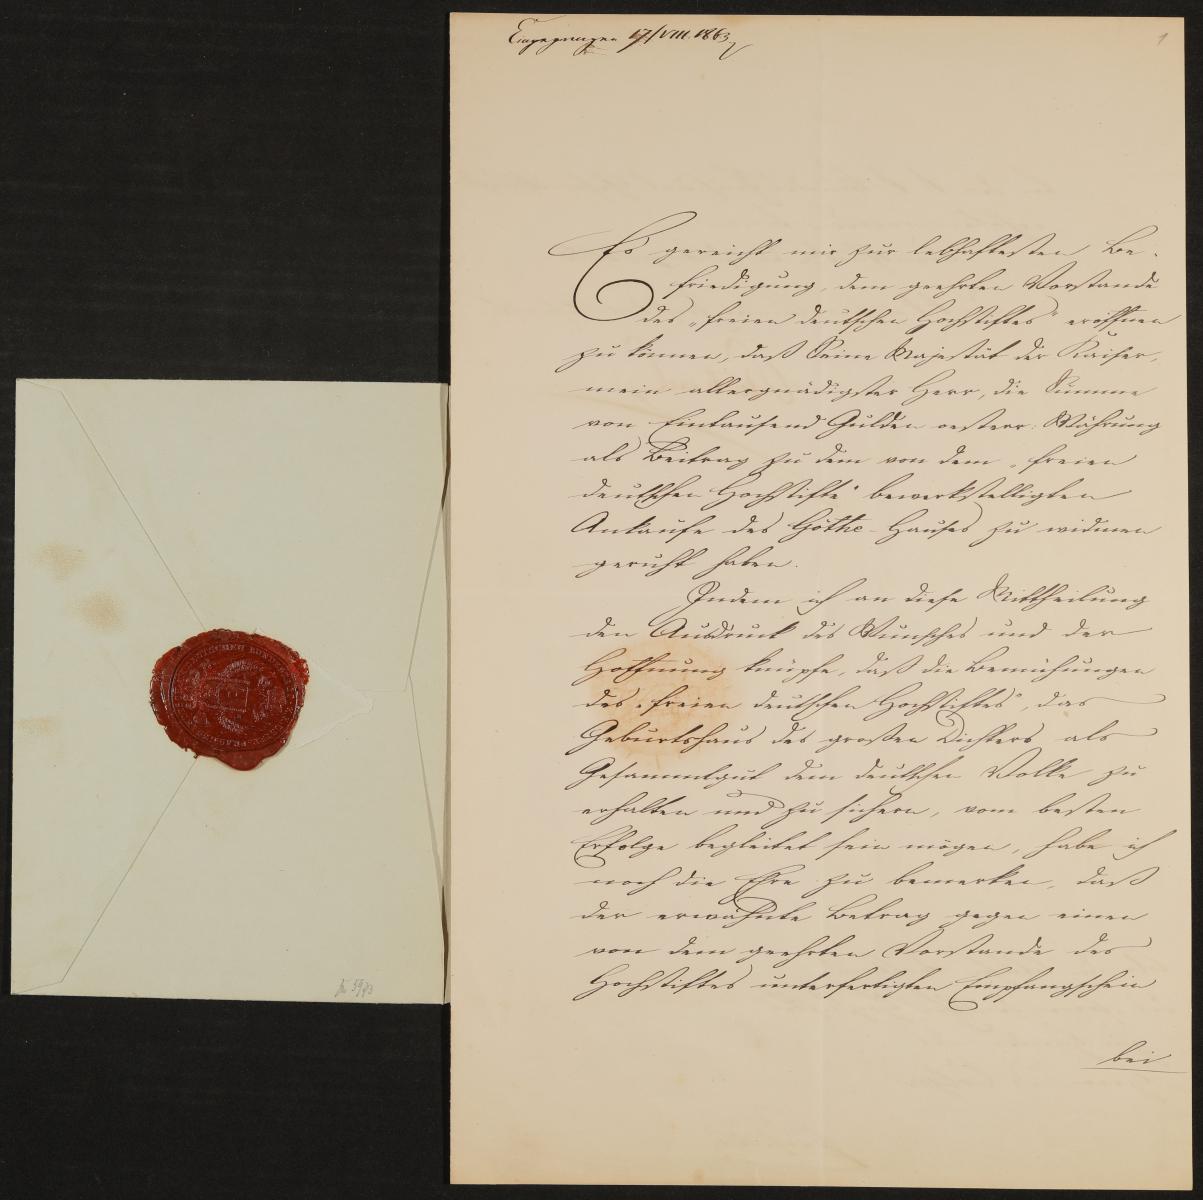 Eingegangen 17/VIII. 1863
1
Es gereicht mir zur lebhaftesten Be-
friedigung, dem geehrten Vorstande
des „freien deutschen Hochstiftes“ eröffnen
zu können, daß Seine Majestät der Kaiser,
mein allergnädigster Herr, die Summe
von Eintausend Gulden oesterr: Währung
als Beitrag zu dem von dem „freien
deutschen Hochstifte“ bewerkstelligten
Ankaufe des Göthe-Hauses zu widmen
geruht haben.
Indem ich an diese Mittheilung
den Ausdruck des Wunsches und der
Hoffnung knüpfe, daß die Bemühungen
des „freien deutschen Hochstiftes“, das
Geburtshaus des großen Dichters als
Gesammtgut dem deutschen Volke zu
erhalten und zu sichern, vom besten
Erfolge begleitet sein mögen, habe ich
noch die Ehre zu bemerken, daß
der erwähnte Betrag gegen einen
von dem geehrten Vorstande des
Hochstiftes unterfertigten Empfangschein
bei